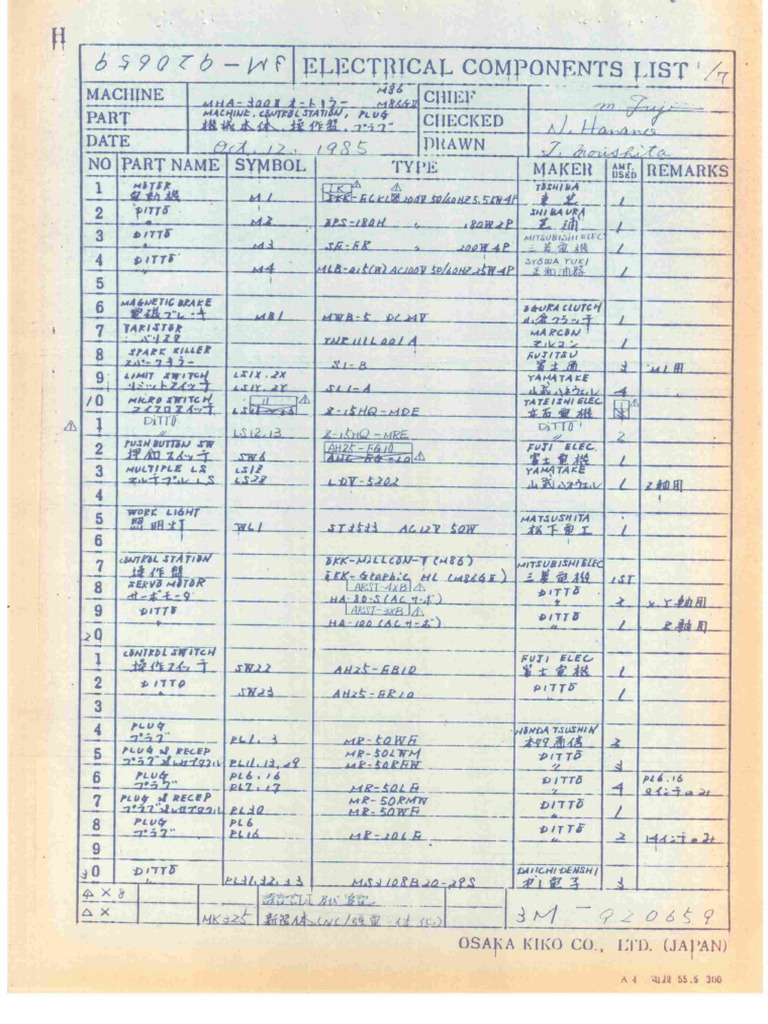 H
3M-920659 ELECTRICAL COMPONENTS LIST 1/7
MACHINE MHA-300Ⅱ オートミラー M86 M86GⅡ CHIEF
PART MACHINE, CONTROL STATION, PLUG 機械本体, 操作盤, プラグ CHECKED N. Hanano
DATE Oct. 12. 1985 DRAWN T. Morishita
NO PART NAME SYMBOL TYPE MAKER AMT. USED REMARKS
1 MOTER 電動機 M1 200V 50/60HZ 5.5KW 4P TOSHIBA 東芝 1
2 DITTO 〃 M2 BPS-180H 〃 180W 2P SHIBAURA 芝浦 1
3 DITTO 〃 M3 SE-ER 〃 200W 4P MITSUBISHI ELEC 三菱電機 1
4 DITTO 〃 M4 AC100V 50/60HZ 25W 4P SYOWA YUKI 正和油器 1
5
6 MAGNETIC BRAKE 電磁ブレーキ MB1 MWB-5 DC24V OGURA CLUTCH 小倉クラッチ 1
7 VARISTOR バリスタ MARCON マルコン 1
8 SPARK KILLER スパークキラー S1-B FUJITSU 富士通 3 M1用
9 LIMIT SWITCH リミットスイッチ LS1X, 2X LS1Y, 2Y SL1-A YAMATAKE 山武ハネウェル 4
10 MICRO SWITCH マイクロスイッチ 11 Z-15HQ-MDE TATEISHI ELEC 立石電機 1
1 DITTO 〃 LS12,13 Z-15HQ-MRE DITTO 〃 2
2 PUSH BUTTON SW 押釦スイッチ SW6 AH25-FG10 FUJI ELEC. 富士電機 1
3 MULTIPLE LS マルチプル LS LS1Z LS2Z LDV-5202 YAMATAKE 山武ハネウェル 1 Z軸用
4
5 WORK LIGHT 照明灯 WL1 ST3533 AC12V 50W MATSUSHITA 松下電工 1
6
7 CONTROL STATION 操作盤 OKK-MILLCON-V (M86) MITSUBISHI ELEC
8 SERVO MOTOR サーボモータ OKK-Graphic ML (M86GⅡ) 三菱電機 1ST
ARST-4×B HA-80-S (ACサーボ) DITTO 〃 2 X, Y軸用
9 DITTO 〃 ARST-3×B HA-100 (ACサーボ) DITTO 〃 1 Z軸用
20
1 CONTROL SWITCH 操作スイッチ SW22 AH25-EB10 FUJI ELEC 富士電機 1
2 DITTO 〃 SW23 AH25-ER10 DITTO 〃 1
3
4 PLUG プラグ PL1, 3 MR-50WF HONDA TSUSHIN 本多通信 2
5 PLUG & RECEP プラグ&レセプタクル PL11, 13, 29 MR-50LWM MR-50RFW DITTO 〃 3
6 PLUG プラグ PL6, 16 PL7, 17 MR-50LF DITTO 〃 4 PL6, 16
7 PLUG & RECEP プラグ&レセプタクル PL30 MR-50RMW MR-50WF DITTO 〃 1
8 PLUG プラグ PL6 PL16 MR-20LF DITTO 〃 2
9
30 DITTO 〃 PL31, 32, 33 MS3108B20-29S DAIICHI DENSHI 第1電子 3
△ × 8
△ × MK325 3M-920659
OSAKA KIKO CO., LTD. (JAPAN)
A4 55.5 300